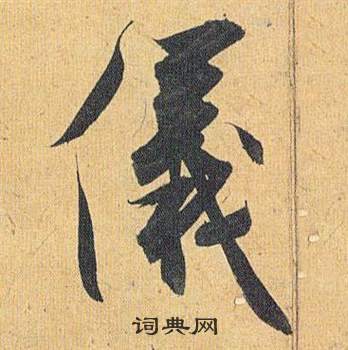 儀
词典网